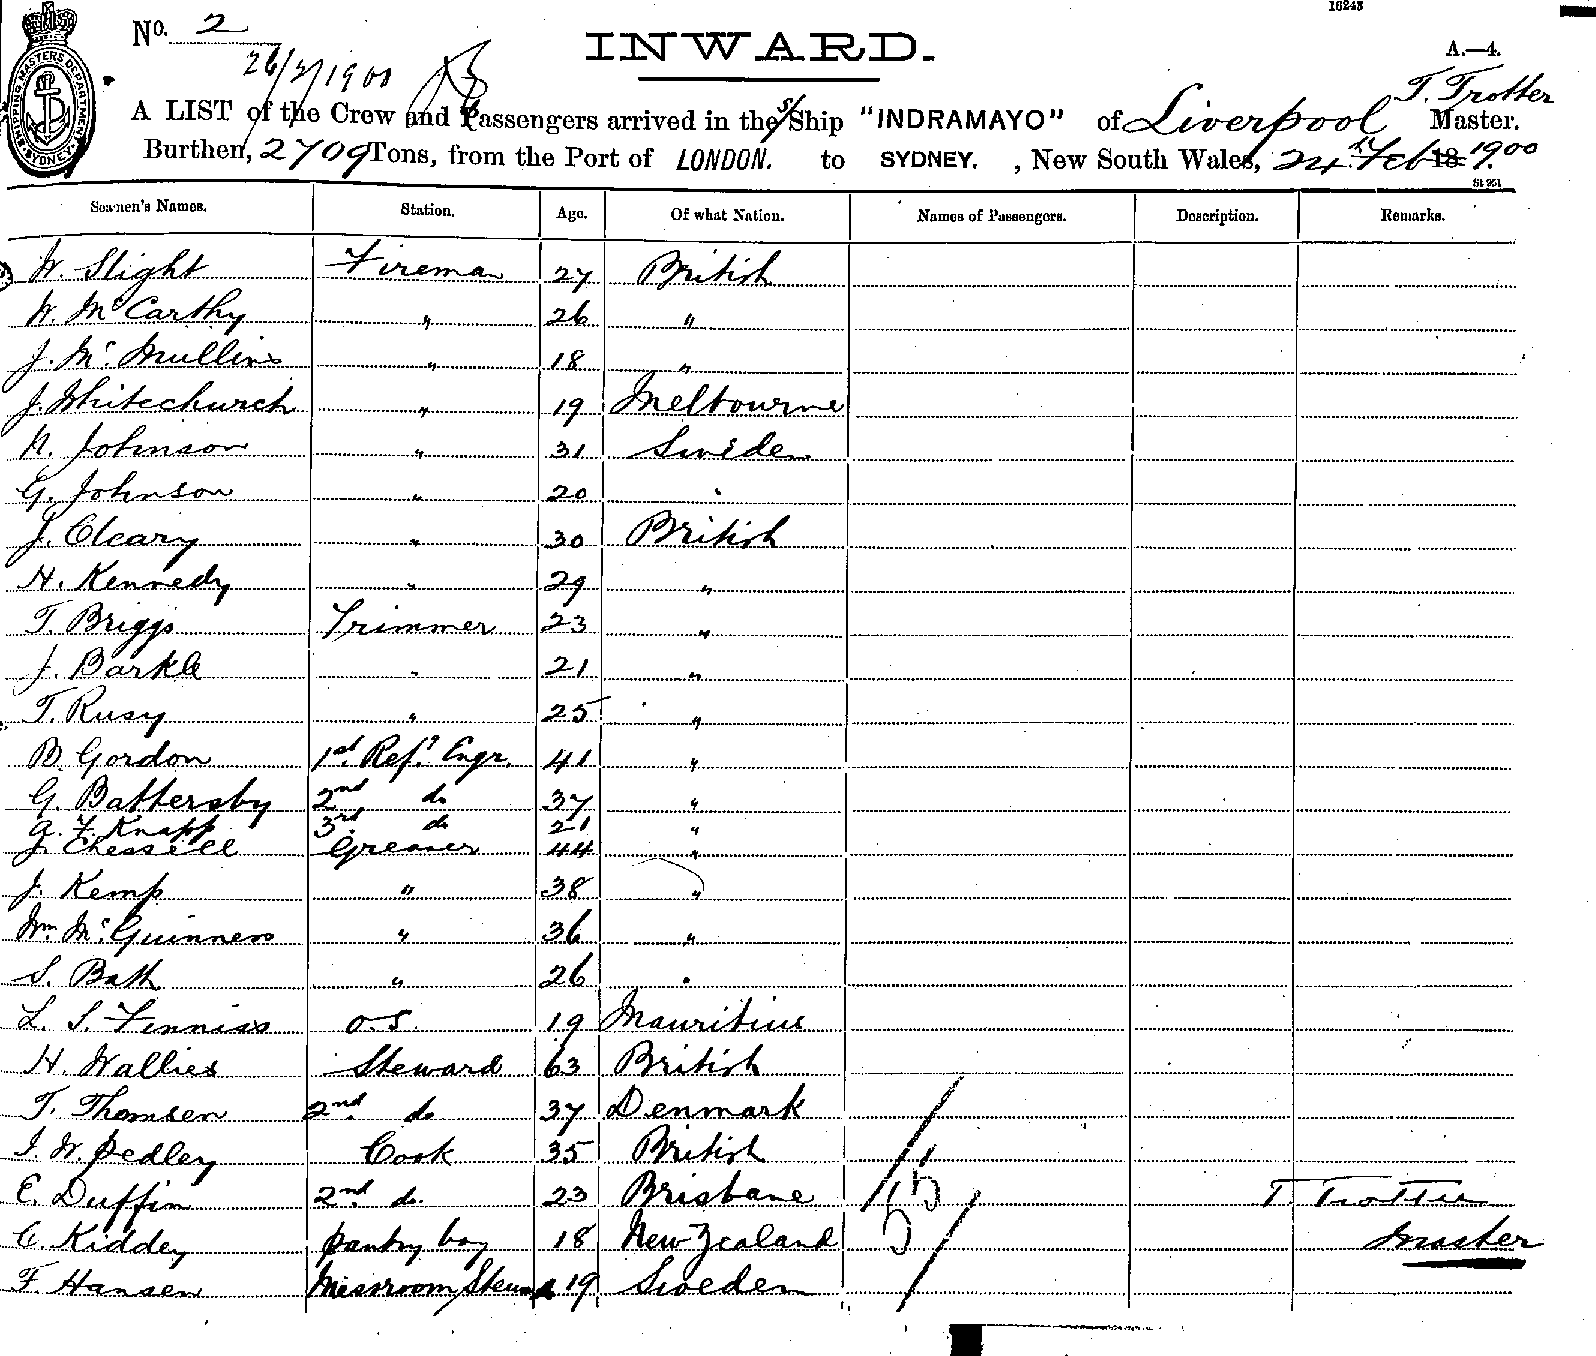 16243
No. 2
INWARD.
A.—4.
26/2/1900
T. Trotter
A LIST of the Crew and Passengers arrived in the s/Ship "INDRAMAYO" of Liverpool Master.
Burthen, 2709 Tons, from the Port of LONDON. to SYDNEY. , New South Wales, 24th Feb 18 1900
St 951
SHIPPING MASTERS DEPARTMENT SYDNEY
Seamen's Names. Station. Age. Of what Nation. Names of Passengers. Description. Remarks.
W. Slight Fireman 27 British
W. McCarthy " 26 "
J. Mc. Mullins " 18 "
J. Whitechurch " 19 Melbourne
N. Johnson " 31 Sweden
G. Johnson " 20 "
J. Cleary " 30 British
H. Kennedy " 29 "
T. Briggs Trimmer 23 "
J. Barkle " 21 "
T. Rusy " 25 "
B. Gordon 1st Refr Engr. 41 "
G. Battersby 2nd do 37 "
A. F. Knapp 3rd do 21 "
J. Chessell Greaser 44 "
J. Kemp " 38 "
Wm. Mc.Guinness " 36 "
S. Bath " 26 "
L. S. Finniss O.S. 19 Mauritius
H. Wallies Steward 63 British
T. Thomsen 2nd do 37 Denmark
J. W. Pedley Cook 35 British
E. Duffin 2nd do. 23 Brisbane 55 T. Trotter
C. Kiddey pantry boy 18 New Zealand Master
F. Hansen Messroom Steward 19 Sweden